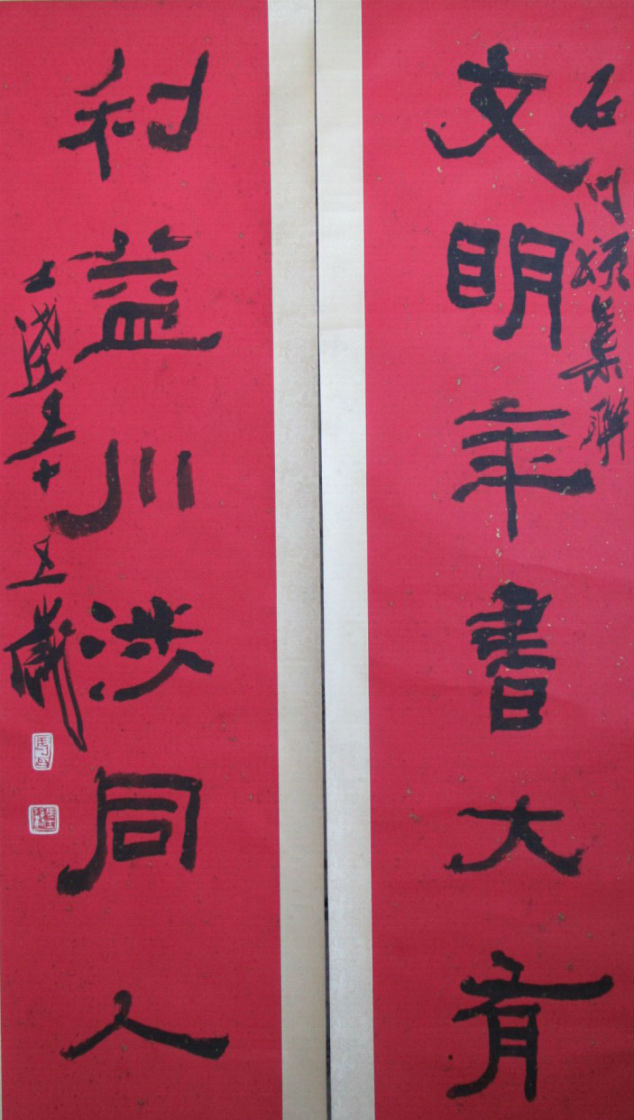 石門頌集聯
文明年書大有
利益川涉同人
五十五歲